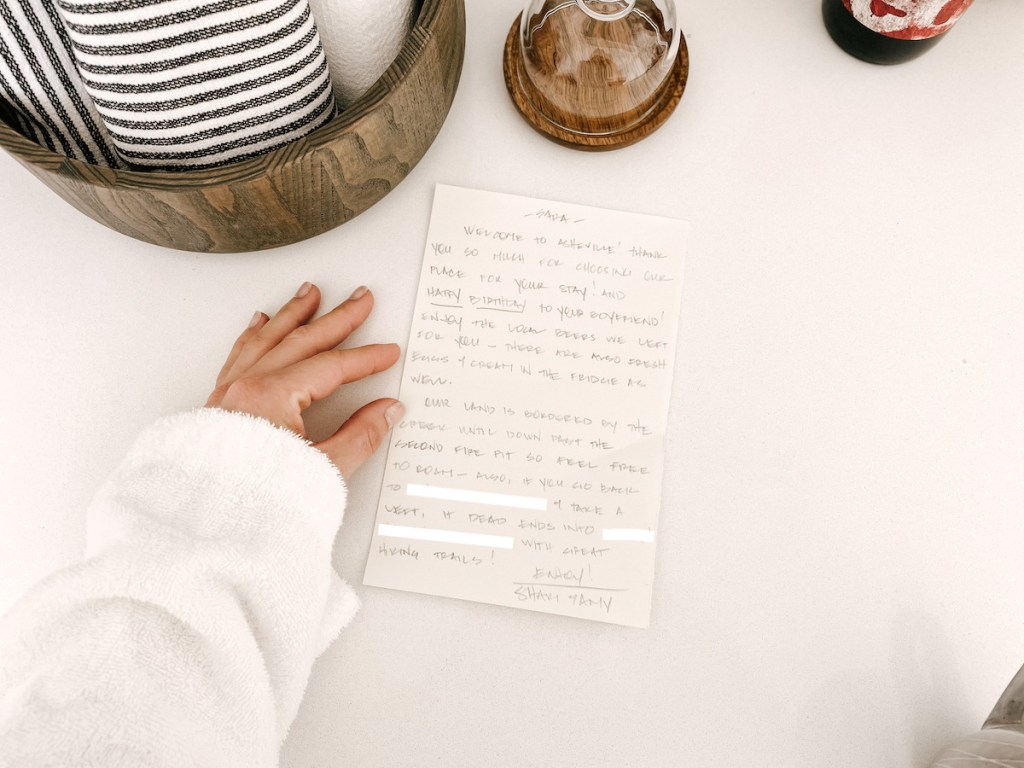 - SARA -
WELCOME TO ASHEVILLE! THANK
YOU SO MUCH FOR CHOOSING OUR
PLACE FOR YOUR STAY! AND
HAPPY BIRTHDAY TO YOUR BOYFRIEND!
ENJOY THE LOCAL BEERS WE LEFT
FOR YOU - THERE ARE ALSO FRESH
EGGS & CREAM IN THE FRIDGE AS
WELL.
OUR LAND IS BORDERED BY THE
CREEK UNTIL DOWN PAST THE
SECOND FIRE PIT SO FEEL FREE
TO ROAM - ALSO, IF YOU GO BACK
TO & TAKE A
LEFT, IT DEAD ENDS INTO
WITH GREAT
HIKING TRAILS!
ENJOY!
SHAWN & AMY